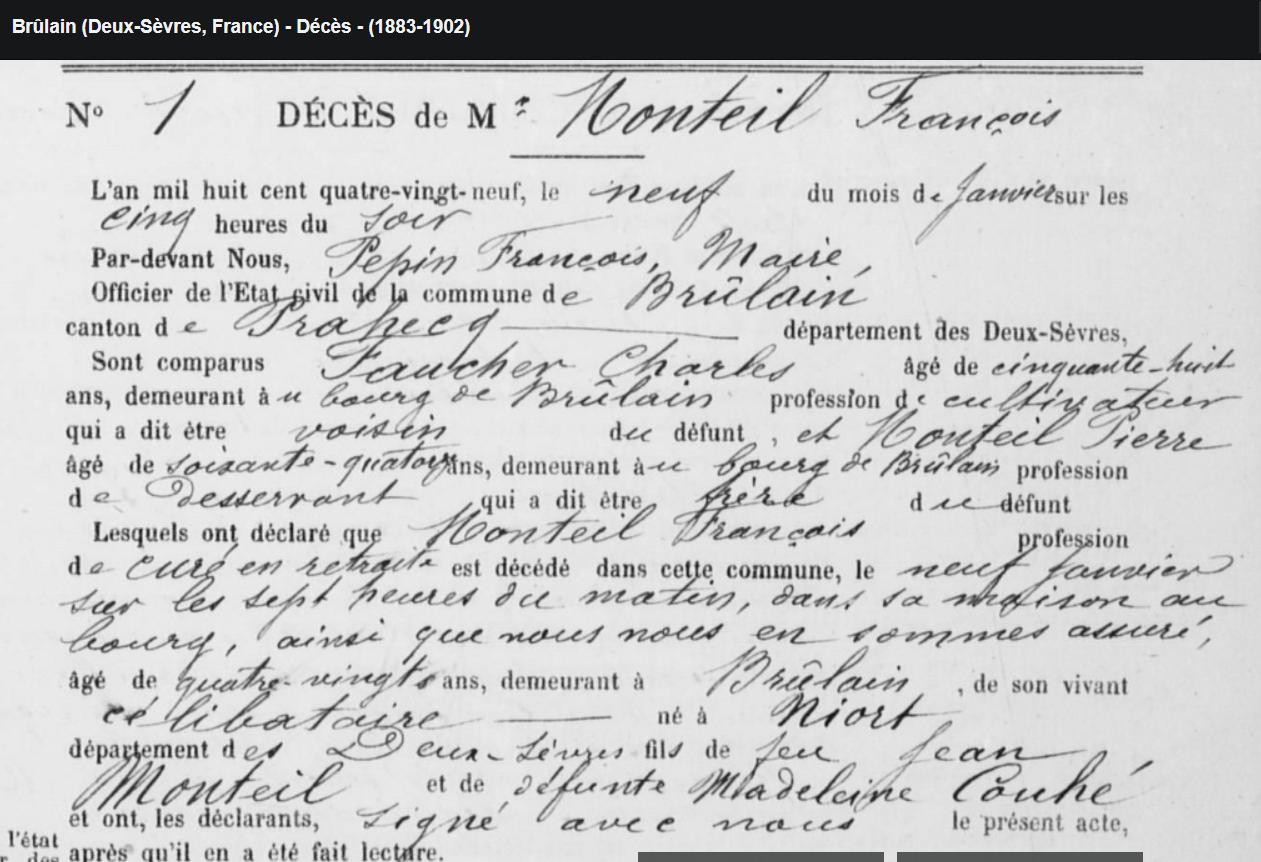 Brûlain (Deux-Sèvres, France) - Décès - (1883-1902)
N° 1 DÉCÈS de Mr Monteil François
L'an mil huit cent quatre-vingt-neuf, le neuf du mois de Janvier sur les
cinq heures du soir
Par-devant Nous, Pepin François, Maire,
Officier de l'Etat civil de la commune de Brûlain
canton de Prahecq département des Deux-Sèvres,
Sont comparus Faucher Charles âgé de cinquante-huit
ans, demeurant au bourg de Brûlain profession de cultivateur
qui a dit être voisin du défunt, et Monteil Pierre
âgé de soixante-quatorze ans, demeurant au bourg de Brûlain profession
de Desservant qui a dit être frère du défunt
Lesquels ont déclaré que Monteil François profession
de curé en retraite est décédé dans cette commune, le neuf Janvier
sur les sept heures du matin, dans sa maison au
bourg, ainsi que nous nous en sommes assuré,
âgé de quatre-vingts ans, demeurant à Brûlain, de son vivant
célibataire né à Niort
département des Deux-Sèvres fils de feu Jean
Monteil et de défunte Madeleine Couhé
et ont, les déclarants, signé avec nous le présent acte,
l'état
après qu'il en a été fait lecture.